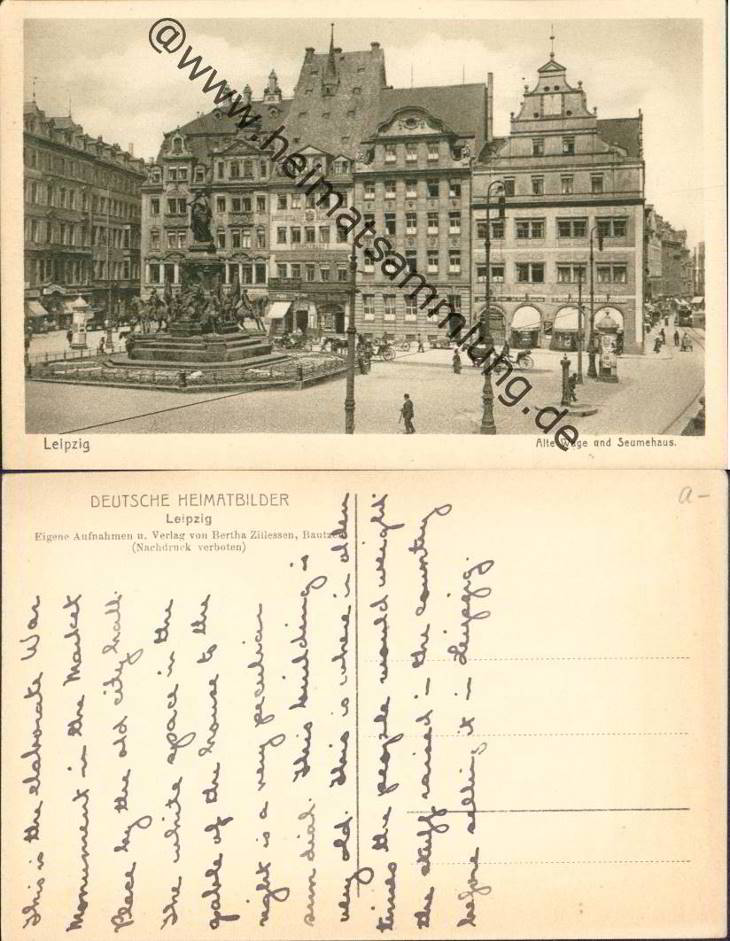 @www.heimatsammlung.de
Leipzig
Alte Wage und Seumehaus.
DEUTSCHE HEIMATBILDER
Leipzig
Eigene Aufnahmen u. Verlag von Bertha Zillessen, Bautzen
(Nachdruck verboten)
a-
This is the elaborate War
Monument in the Market
Place by the old city hall.
The white space in the
gable of the house to the
right is a very peculiar
sun dial. This building is
very old. This is where in olden
times the people would weight
the stuff raised in the country
before selling it in Leipzig.